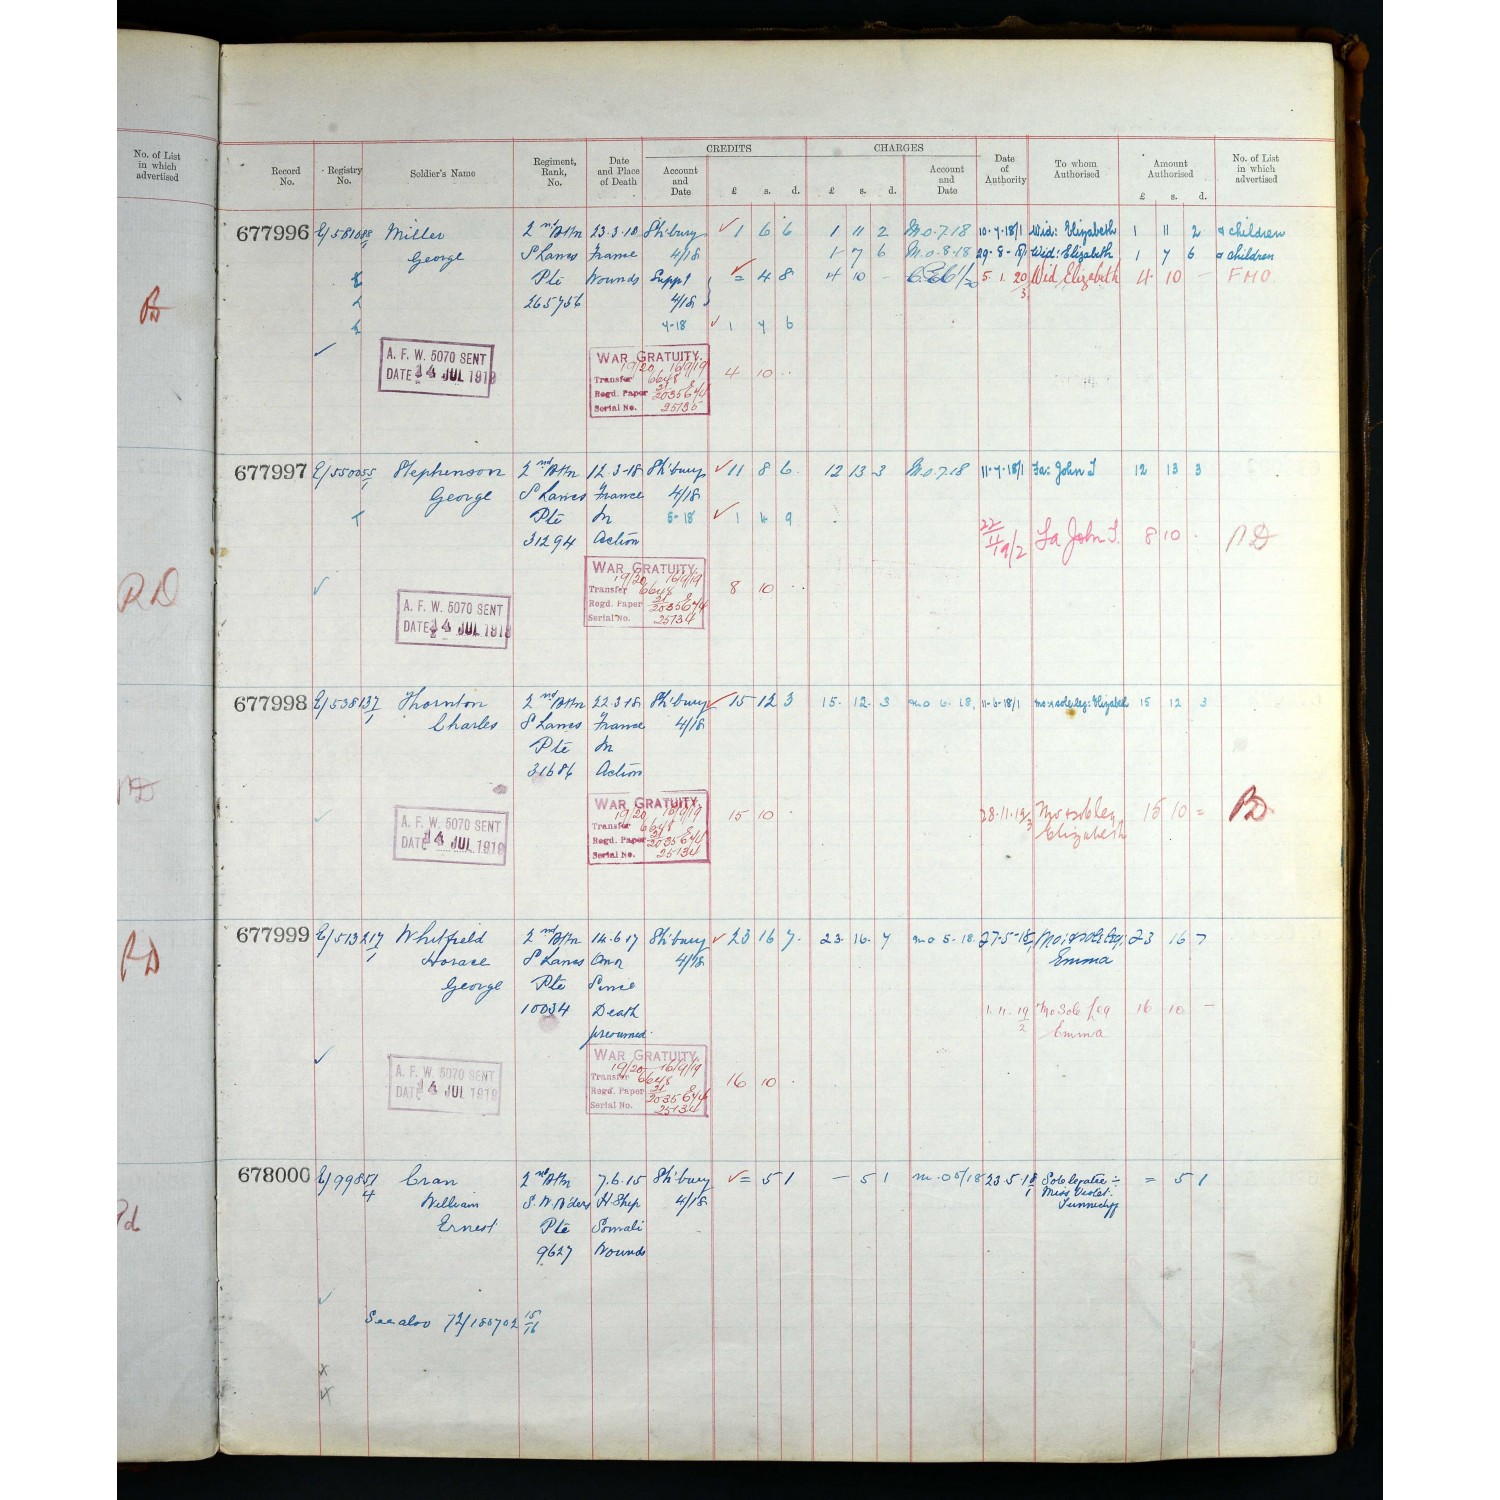 No. of List in which advertised
Record No. Registry No. Soldier's Name Regiment, Rank, No. Date and Place of Death CREDITS Account and Date £ s. d. CHARGES £ s. d. Account and Date Date of Authority To whom Authorised Amount Authorised £ s. d. No. of List in which advertised
677996 Miller 2nd Battn 23.3.18 Sh'bury 1 6 6 1 11 2 M.O. 7.18 10.7.18/1 Wid: Elizabeth 1 11 2 & children
George S Lancs France 4/18 1 7 6 M.O. 8.18 29.8.18/1 Wid: Elizabeth 1 7 6 & children
Pte Wounds Suppl = 4 8 4 10 - 5.1.20/3 Wid Elizabeth 4 10 -
265756 4/18
7-18 1 7 6
A. F. W. 5070 SENT
DATE 14 JUL 1919
WAR GRATUITY.
19/20 16/9/19
Transfer 6648
Regd. Paper 21/2035 E/4
Serial No. 25135
4 10
RD
677997 E/55005/1 Stephenson 2nd Battn 12.3.18 Sh'bury 11 8 6 12 13 3 M.O. 7.18 11.7.18/1 Fa: John T 12 13 3
George S Lancs France 4/18
Pte In 5-18 1 4 9
31294 Action
22/11 19/2 Fa John T. 8 10 RD
WAR GRATUITY.
19/20 16/9/19
Transfer 6648
Regd. Paper 21/2035 E/4
Serial No. 25134
8 10
A. F. W. 5070 SENT
DATE 14 JUL 1919
RD
677998 E/538137/1 Thornton 2nd Battn 22.3.18 Sh'bury 15 12 3 15 12 3 mo 6.18. 11-6-18/1 mo & sole leg: Elizabeth 15 12 3
Charles S Lancs France 4/18
Pte In
31686 Action
WAR GRATUITY.
19/20 16/9/19
Transfer 6648
Regd. Paper 21/2035 E/4
Serial No. 25134
15 10 28.11.19/3 Mo & sole leg 15 10 = RD
Elizabeth
A. F. W. 5070 SENT
DATE 14 JUL 1919
RD
677999 E/513217/1 Whitfield 2nd Battn 14.6.17 Sh'bury 23 16 7 23 16 7 mo 5.18. 27-5-18 Mo: & sole leg 23 16 7
Horace S Lancs On or 4/18 Emma
George Pte Since
10034 Death 1.11.19/2 Mo Sole leg 16 10 -
presumed Emma
WAR GRATUITY.
19/20 16/9/19
Transfer 6648
Regd. Paper 21/2035 E/4
Serial No. 25134
16 10
A. F. W. 5070 SENT
DATE 14 JUL 1919
RD
678000 E/99851/4 Cran 2nd Battn 7.6.15 Sh'bury = 5 1 - 5 1 m.o 5/18 23.5.18/1 Sole legatee: = 5 1
William S. W. B'ders H. Ship 4/18 Miss Violet
Ernest Pte Somali Tunnicliff
9627 Wounds
See also 72/180702 15/16